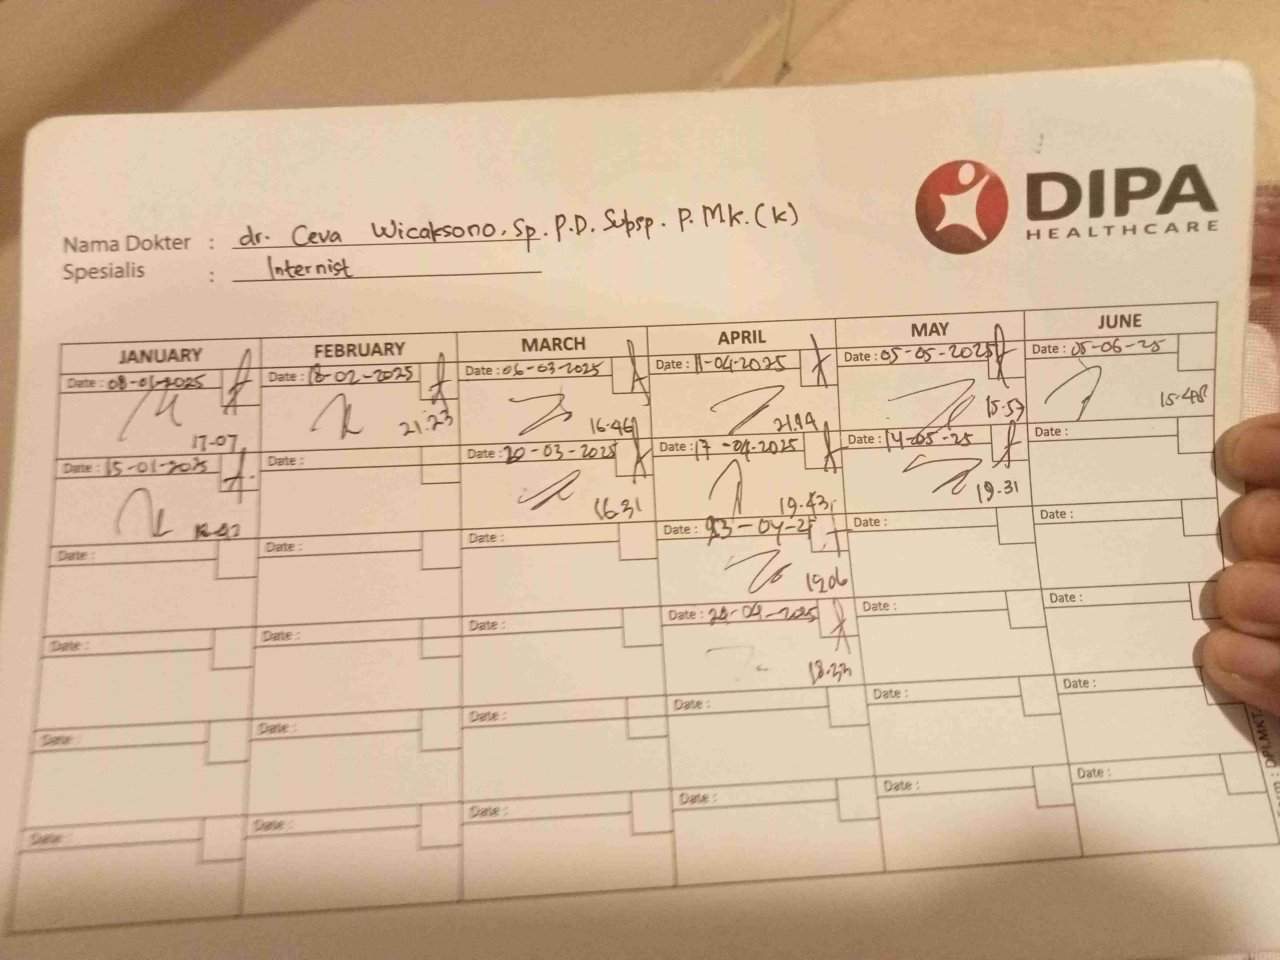 DIPA
HEALTHCARE
Nama Dokter : dr. Ceva Wicaksono, Sp.P.D. Subsp. P.Mk.(K)
Spesialis : Internist
JANUARY FEBRUARY MARCH APRIL MAY JUNE
Date : 08-01-2025 Date : 18-02-2025 Date : 06-03-2025 Date : 11-04-2025 Date : 05-05-2025 Date : 05-06-25
17-07 21:23 16-46 21.44 15-57 15-48
Date : 15-01-2025 Date : Date : 20-03-2025 Date : 17-04-2025 Date : 14-05-25 Date :
16.31 19.43 19.31
Date : Date : Date : Date : 23-04-25 Date : Date :
1906
Date : Date : Date : Date : 28-04-2025 Date : Date :
18.33
Date : Date : Date : Date : Date : Date :
Date : Date : Date : Date : Date : Date :